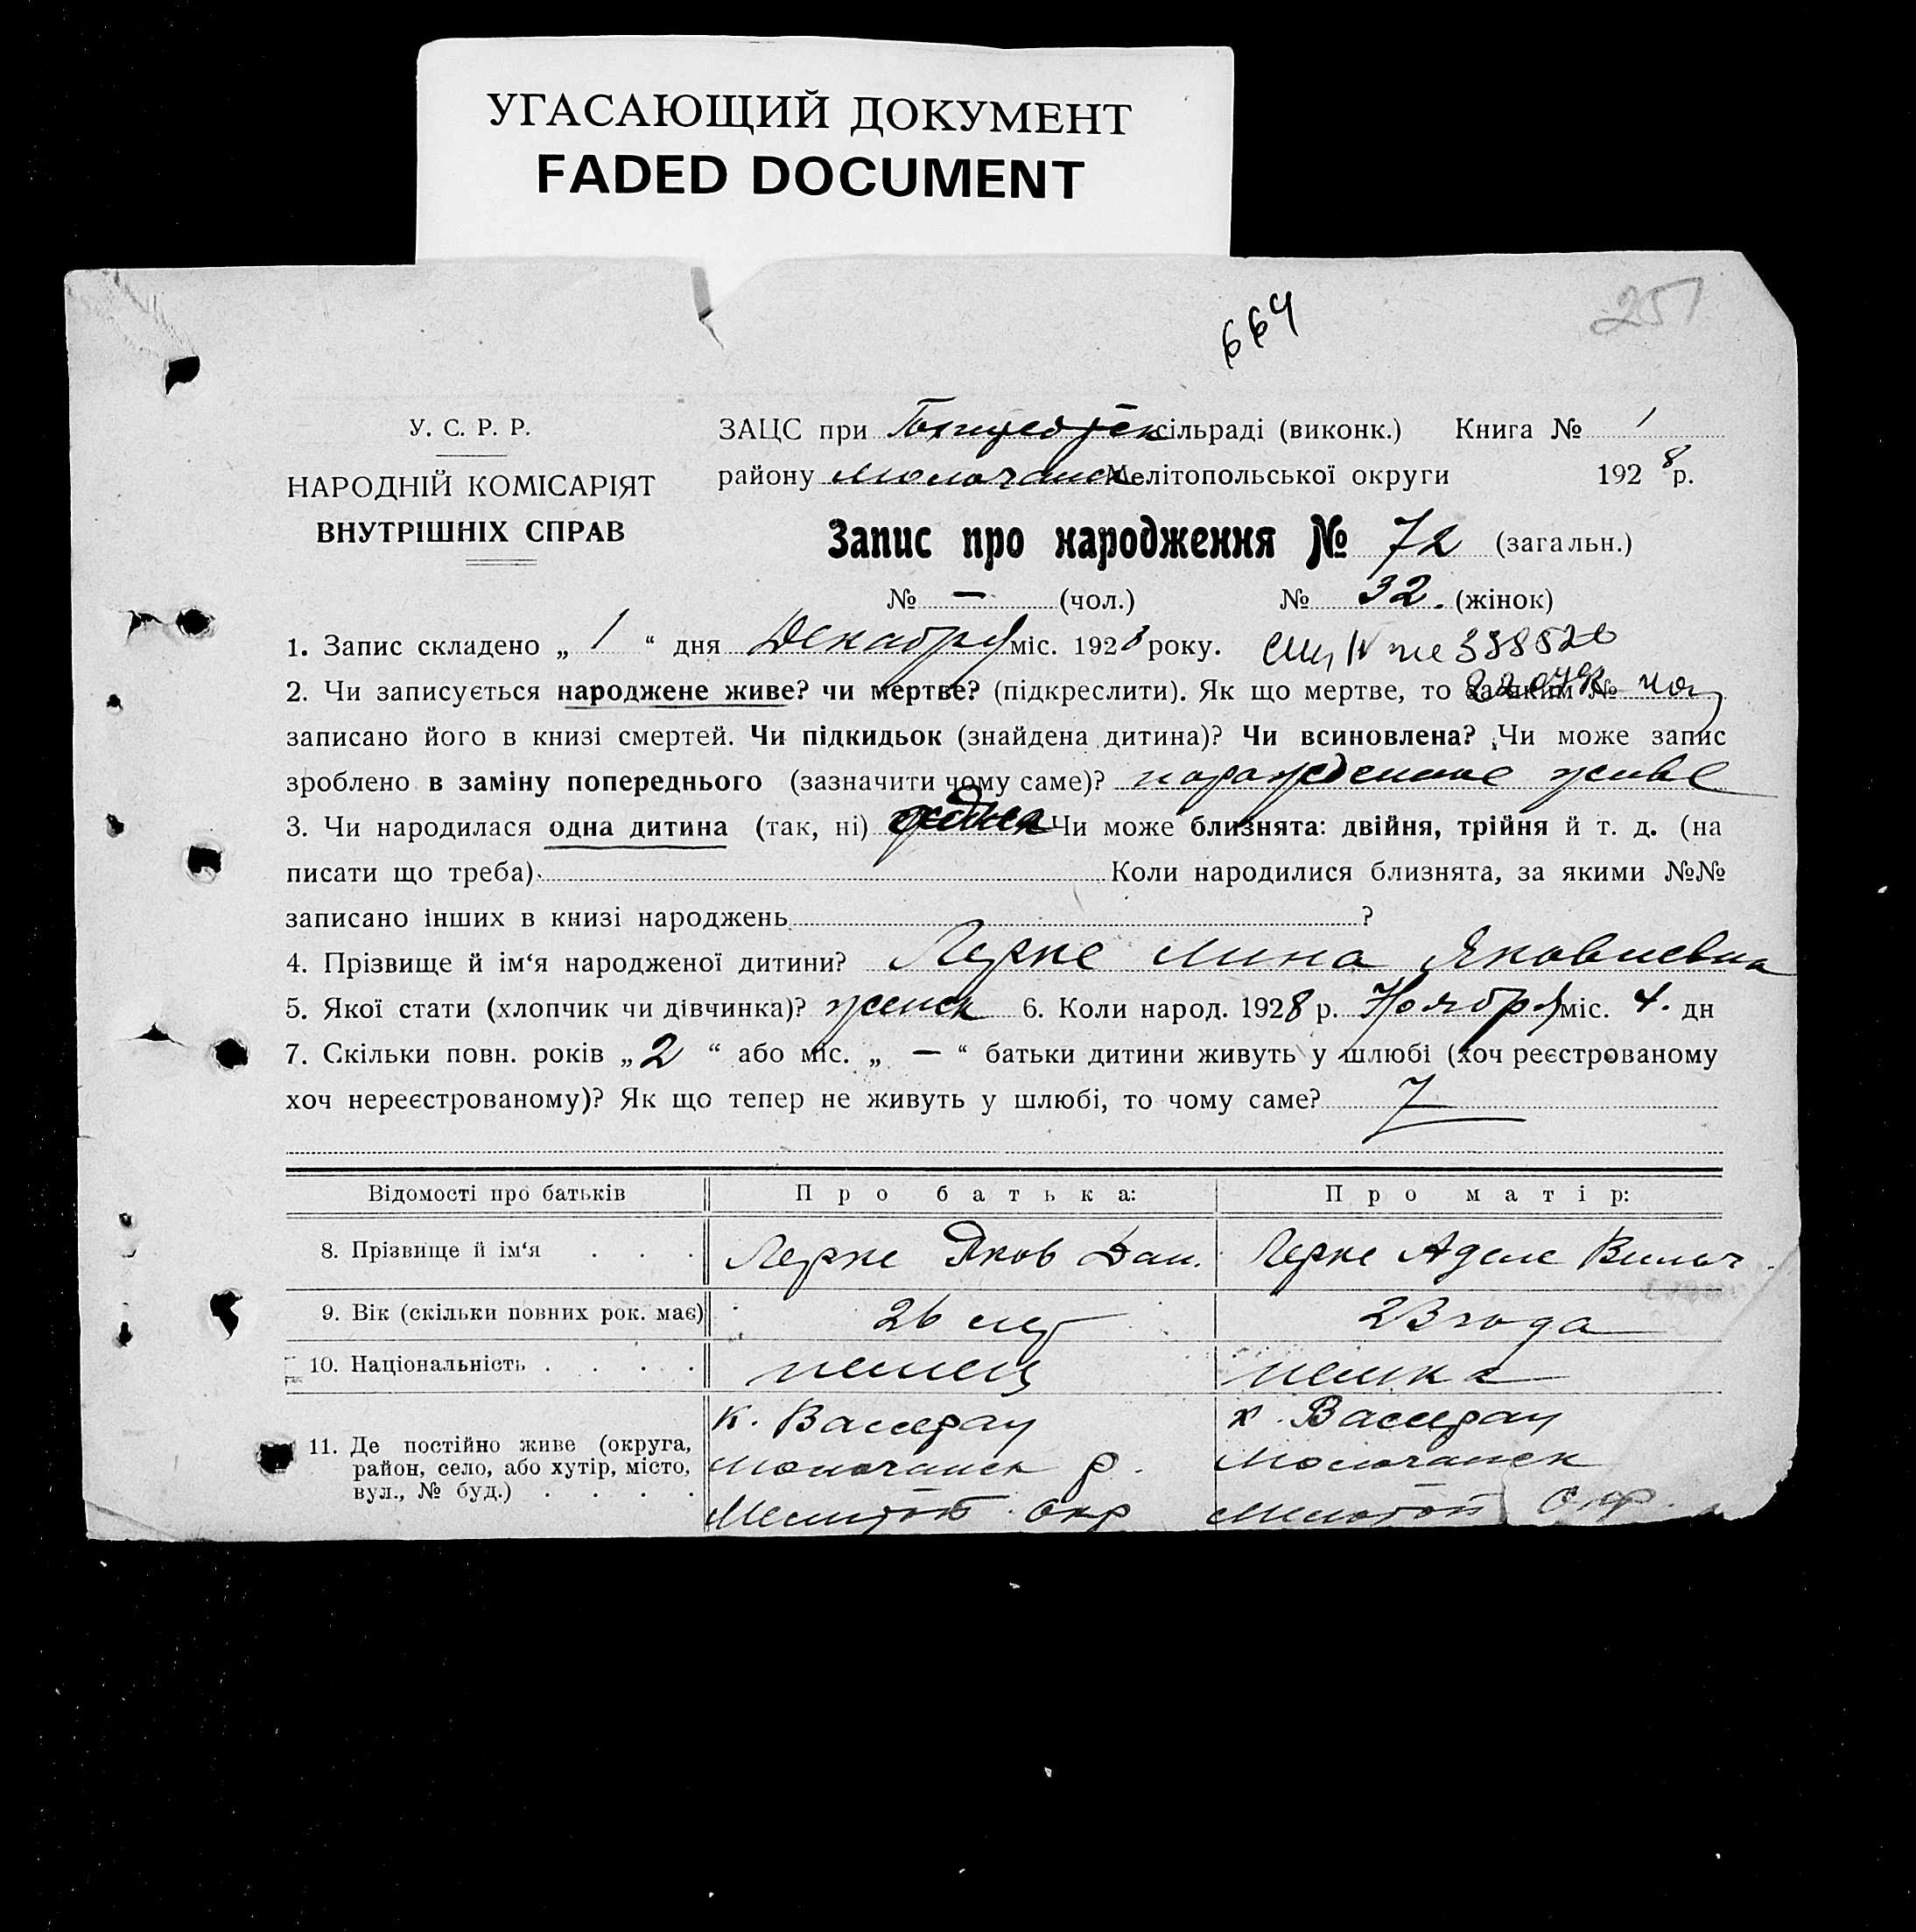 УГАСАЮЩИЙ ДОКУМЕНТ
FADED DOCUMENT
664
251
У. С. Р. Р.
НАРОДНІЙ КОМІСАРІЯТ
ВНУТРІШНІХ СПРАВ
ЗАЦС при сільраді (виконк.) Книга № 1
району Молочанск Мелітопольської округи 1928 р.
Запис про народження № 72 (загальн.)
№ — (чол.) № 32. (жінок)
1. Запис складено „ 1 “ дня Декабря міс. 1928 року.
2. Чи записується народжене живе? чи мертве? (підкреслити). Як що мертве, то за яким №
записано його в книзі смертей. Чи підкидьок (знайдена дитина)? Чи всиновлена? Чи може запис
зроблено в заміну попереднього (зазначити чому саме)? живе
3. Чи народилася одна дитина (так, ні) одна Чи може близнята: двійня, трійня й т. д. (на
писати що треба) Коли народилися близнята, за якими №№
записано інших в книзі народжень ?
4. Прізвище й ім‘я народженої дитини? Лерке Лина Яковлевна
5. Якої стати (хлопчик чи дівчинка)? женск 6. Коли народ. 1928 р. Ноября міс. 4. дн
7. Скільки повн. років „ 2 “ або міс. „ — “ батьки дитини живуть у шлюбі (хоч реєстрованому
хоч нереєстрованому)? Як що тепер не живуть у шлюбі, то чому саме?
Відомості про батьків Про батька: Про матір:
8. Прізвище й ім‘я . . . Лерке Яков Дан. Лерке Аделе Вильг.
9. Вік (скільки повних рок. має) 26 лет 23 года
10. Національність . . . . немец немка
11. Де постійно живе (округа, район, село, або хутір, місто, вул., № буд.) . . . .
к. Вассерау к. Вассерау
Молочанск р. Молочанск
Мелитоп. Окр Мелитоп Окр.